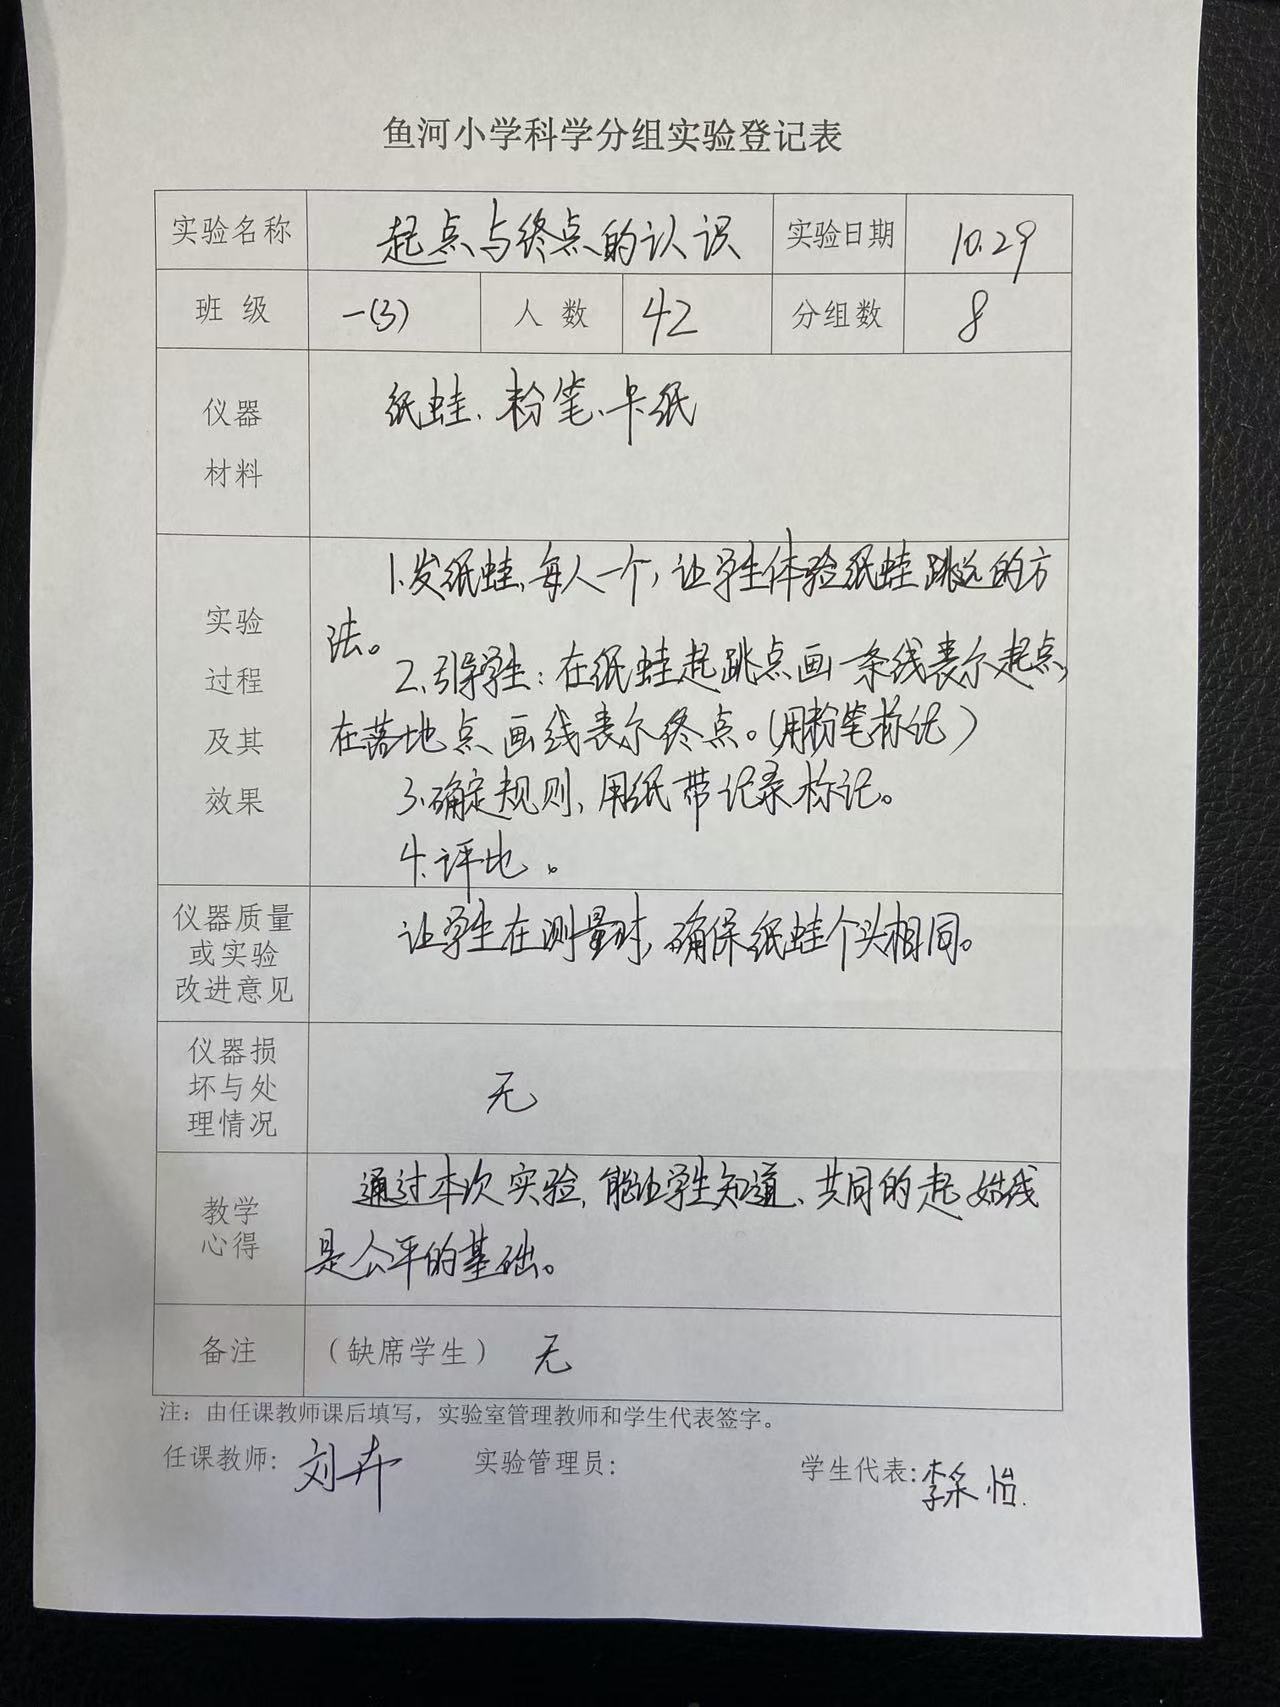 鱼河小学科学分组实验登记表
实验名称 起点与终点的认识 实验日期 10.29
班 级 一(3) 人 数 42 分组数 8
仪器
材料
纸蛙、粉笔、卡纸
实验
过程
及其
效果
1.发纸蛙,每人一个,让学生体验纸蛙跳远的方
法。
2.引导学生:在纸蛙起跳点画一条线表示起点,
在落地点画线表示终点。(用粉笔标记)
3.确定规则,用纸带记录标记。
4.评比。
仪器质量
或实验
改进意见
让学生在测量时,确保纸蛙个头相同。
仪器损
坏与处
理情况
无
教学
心得
通过本次实验,能让学生知道、共同的起始线
是公平的基础。
备注 (缺席学生) 无
注:由任课教师课后填写,实验室管理教师和学生代表签字。
任课教师: 刘卉 实验管理员: 学生代表:李采怡